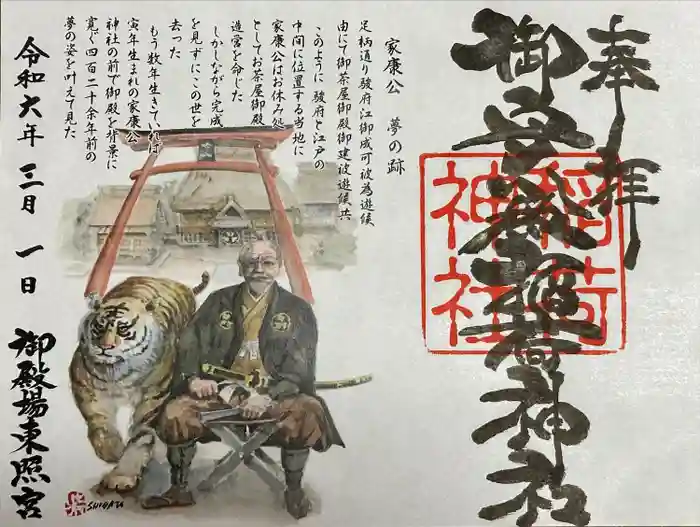 奉拝
稲荷神社
稲荷
神社
家康公 夢の跡
足柄通り駿府江御成可被為遊候
由にて御茶屋御殿御建被遊候共
このように駿府と江戸の
中間に位置する当地に
家康公はお休み処
としてお茶屋御殿
造営を命じた
しかしながら完成
を見ずにこの世を
去った
もう数年生きていれば
寅年生まれの家康公
神社の前で御殿を背景に
寛ぐ四百二十余年前の
夢の姿を叶えて見た
令和六年 三月 一日
御殿場東照宮